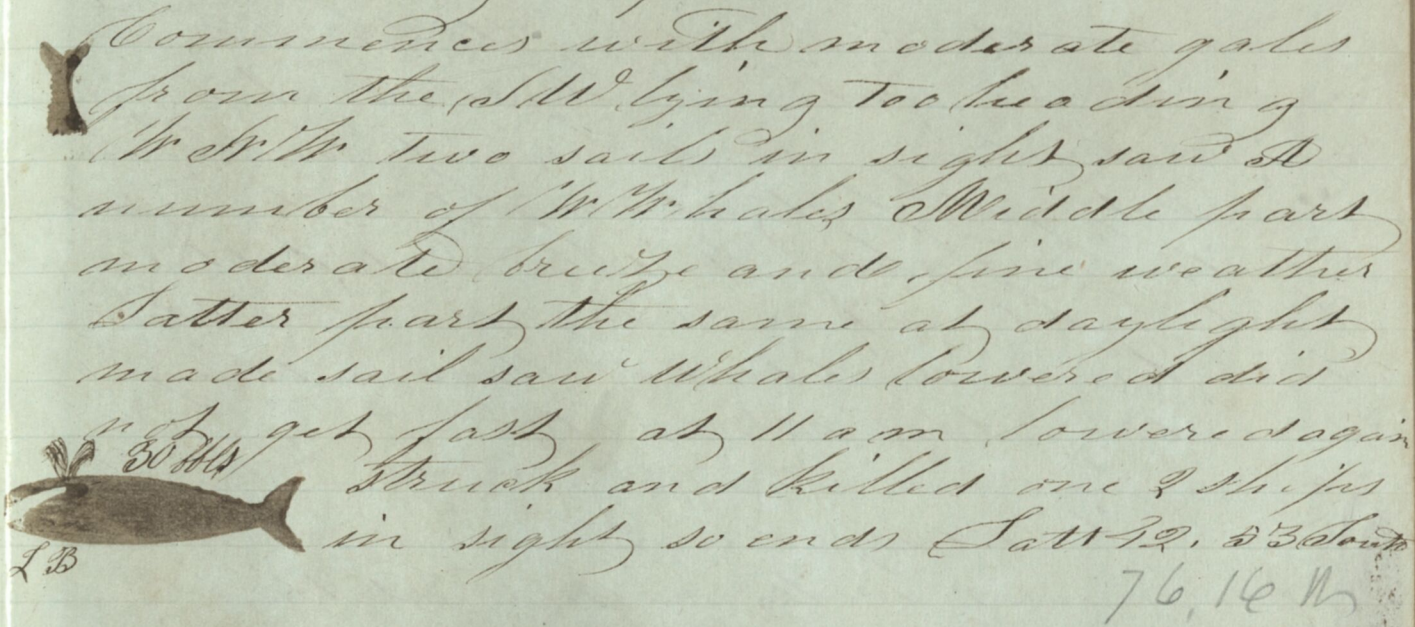 Commences with moderate gales
from the SW lying Too heading
W N W two sails in sight saw A
number of W Whales Middle part
moderate breeze and fine weather
Latter part the same at daylight
made sail saw Whales lowered did
not get fast at 11 am lowered again
30 bbls
struck and killed one 2 ships
in sight so ends Latt 42. 53 South
L B
76.16 W